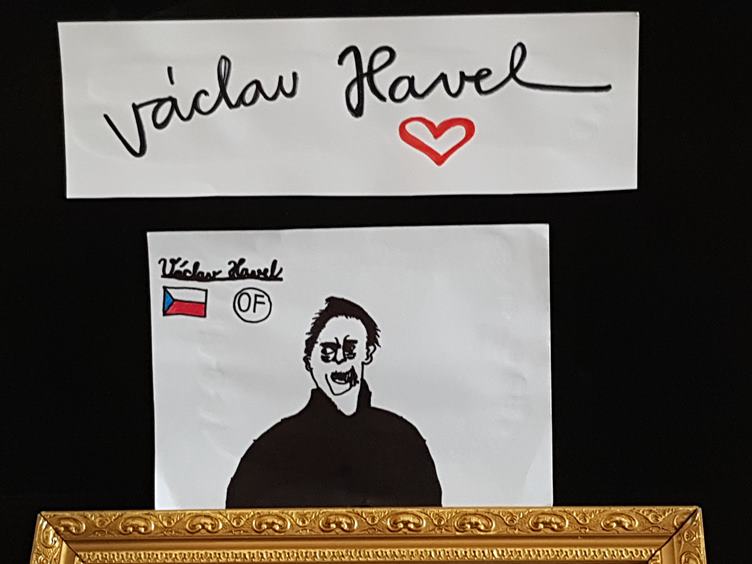 Václav Havel
Václav Havel
OF